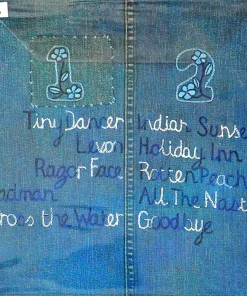 1
Tiny Dancer
Levon
Razor Face
adman
cross the Water
2
Indian Sunse
Holiday Inn
Rotten Peach
All The Nast
Goodbye